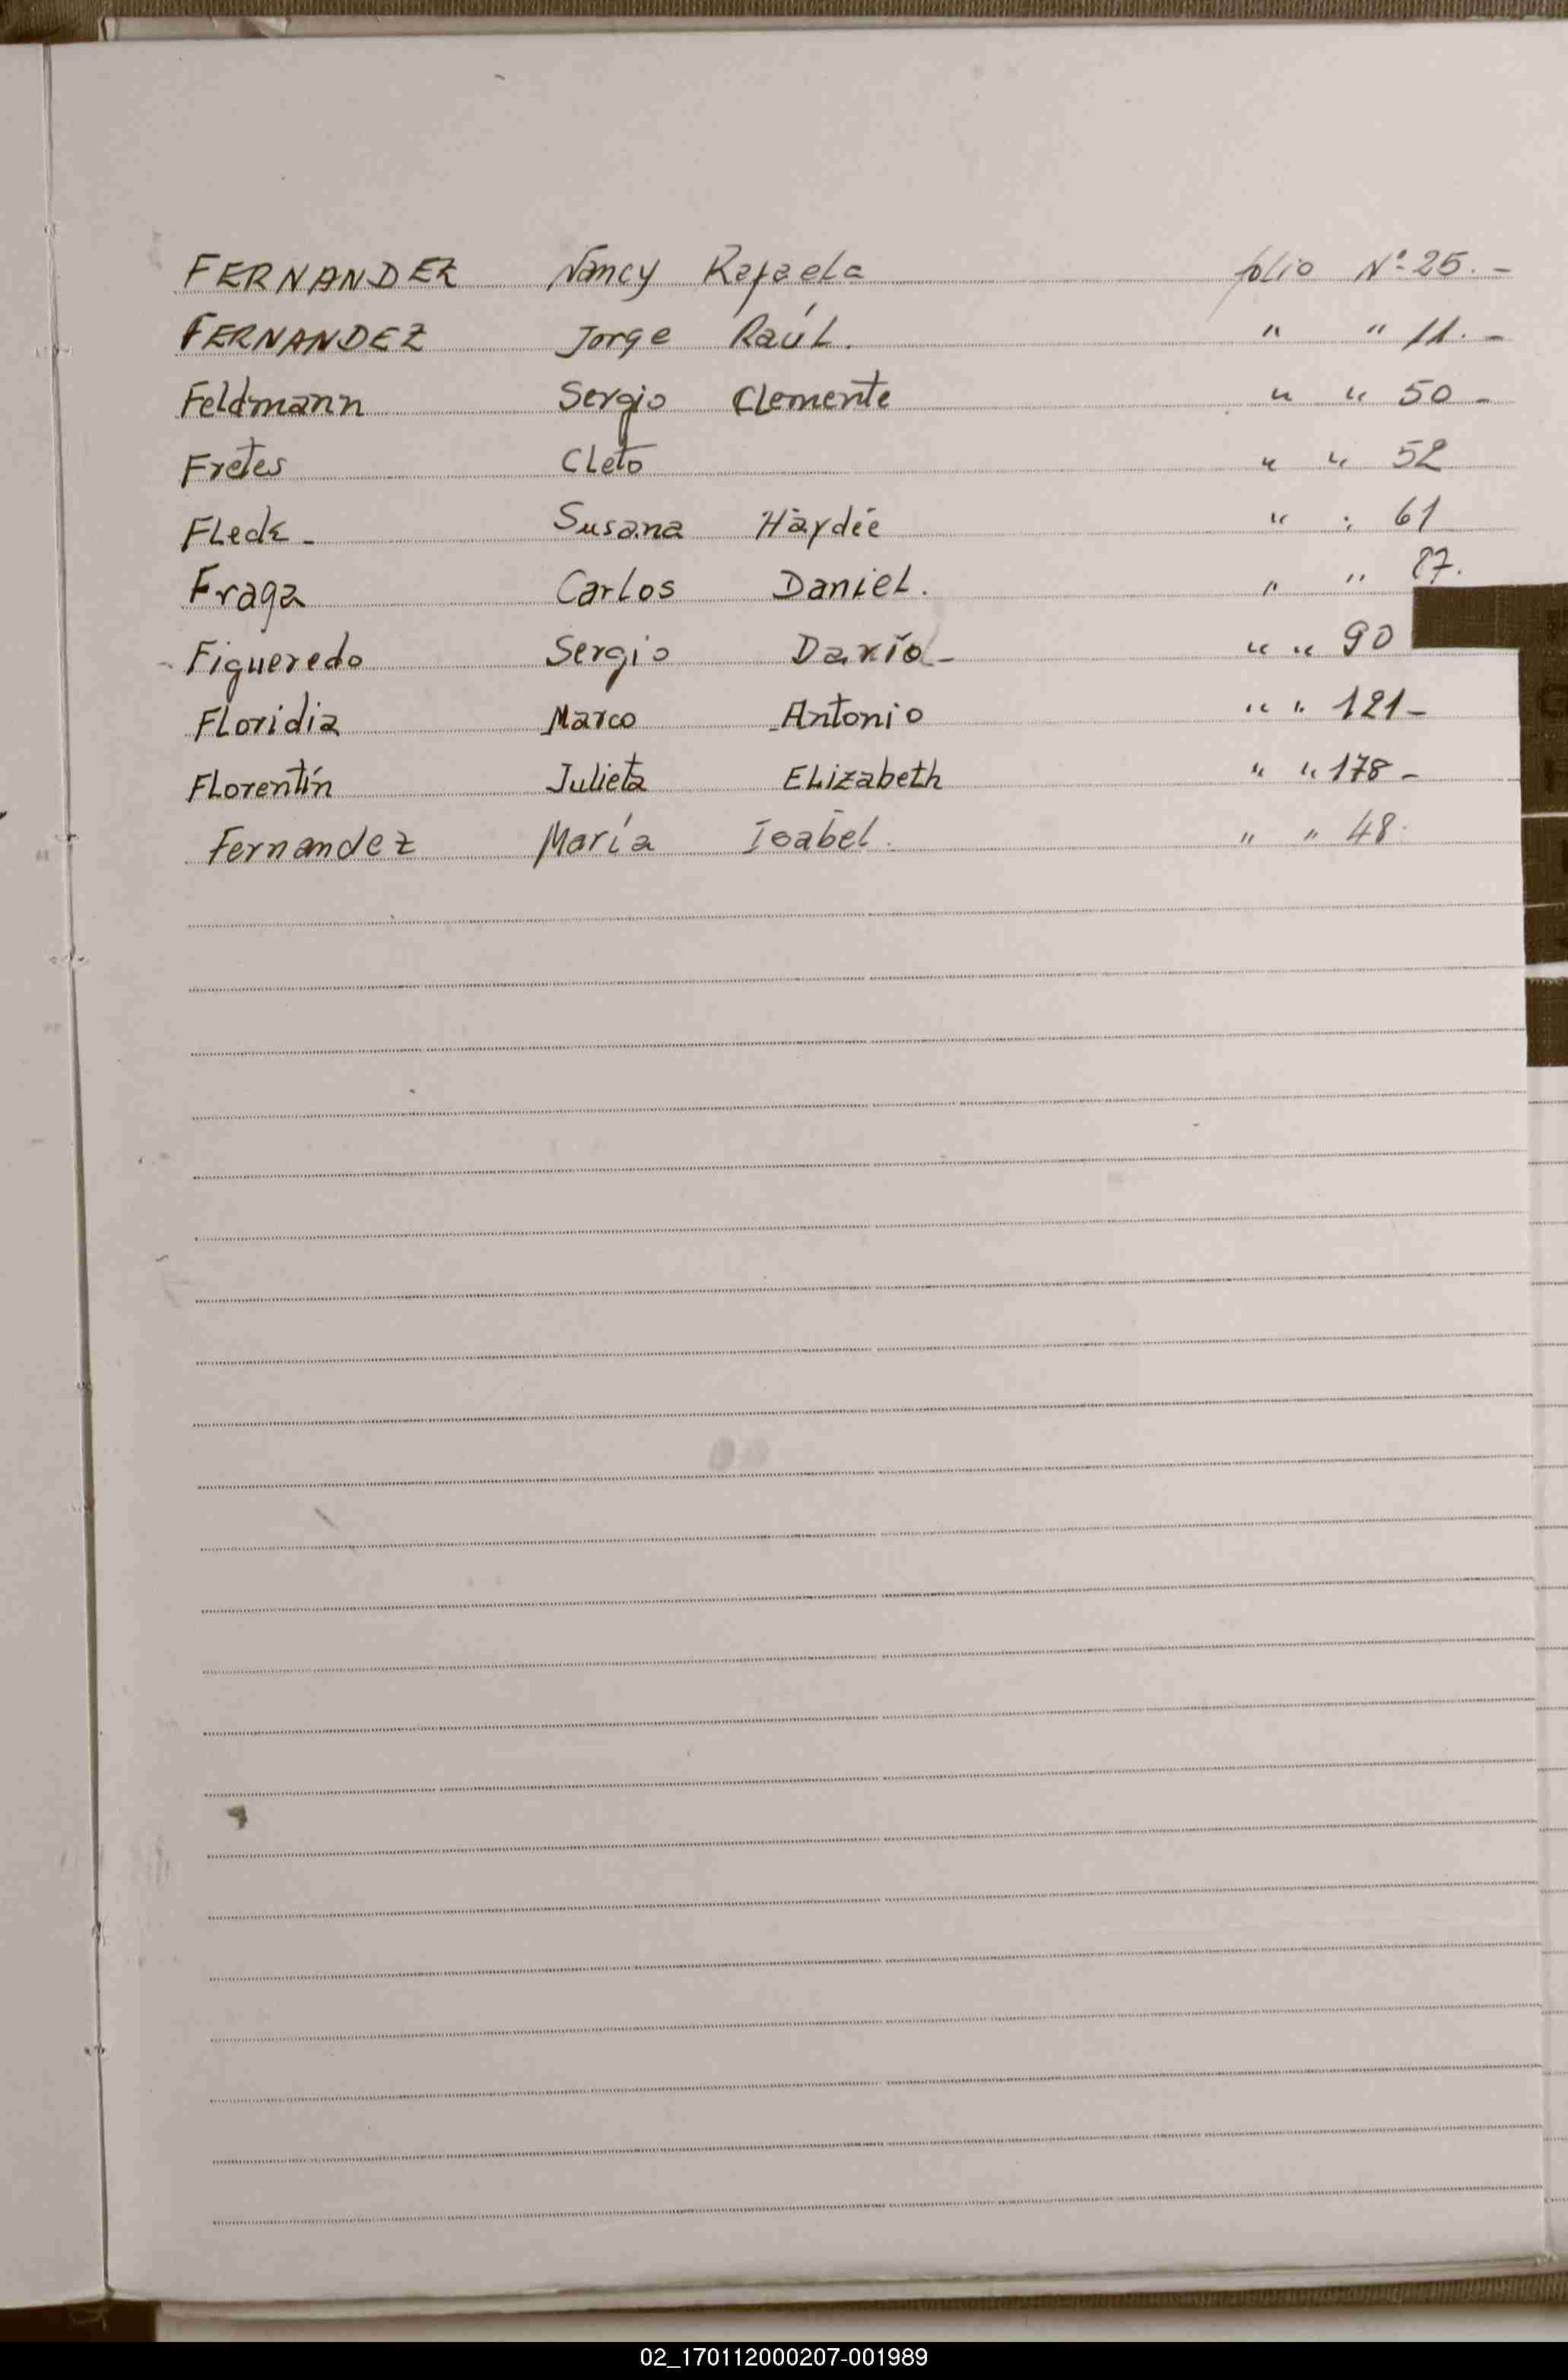 FERNANDEZ Nancy Rafaela folio Nº 25.-
FERNANDEZ Jorge Raúl. " " 11.-
Feldmann Sergio Clemente " " 50-
Fretes Cleto " " 52
Fleck- Susana Haydée " " 61
Fraga Carlos Daniel. " " 87.
- Figueredo Sergio Darío- " " 90
Floridia Marco Antonio " " 121-
Florentín Julieta Elizabeth " " 178-
Fernandez María Isabel. " " 48.
02_170112000207-001989